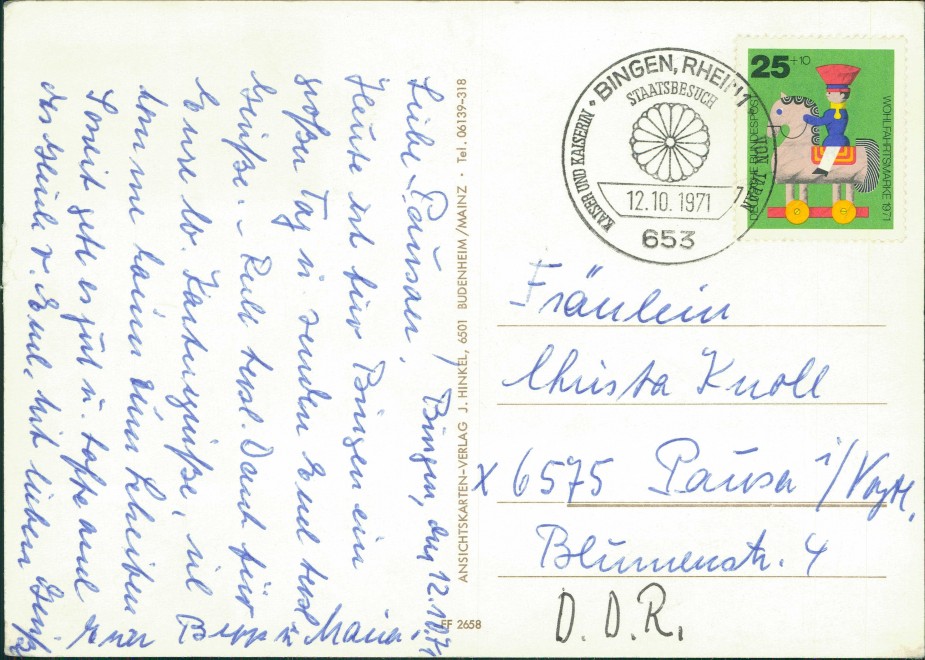 Bingen, den 12.10.71
Liebe Pausaer!
Heute ist für Bingen ein
großer Tag u. senden Euch herzl.
Grüße. Recht herzl. Dank für
Eure lb. Kartengrüße, viel
kommne kaum zum Schreiben
Somit geht es gut u. hoffe auch
das Gleiche v. Euch, mit lieben Grüß
Euer Bepp u. Maria.
ANSICHTSKARTEN-VERLAG J. HINKEL, 6501 BUDENHEIM/MAINZ · Tel. 06139-318
FF 2658
BINGEN, RHEIN 1
STAATSBESUCH
KAISER UND KAISERIN VON JAPAN
12.10.1971
653
25+10
DEUTSCHE BUNDESPOST
WOHLFAHRTSMARKE 1971
Fräulein
Christa Knoll
X 6575 Pausa i/Vogtl.
Blumenstr. 4
D.D.R.